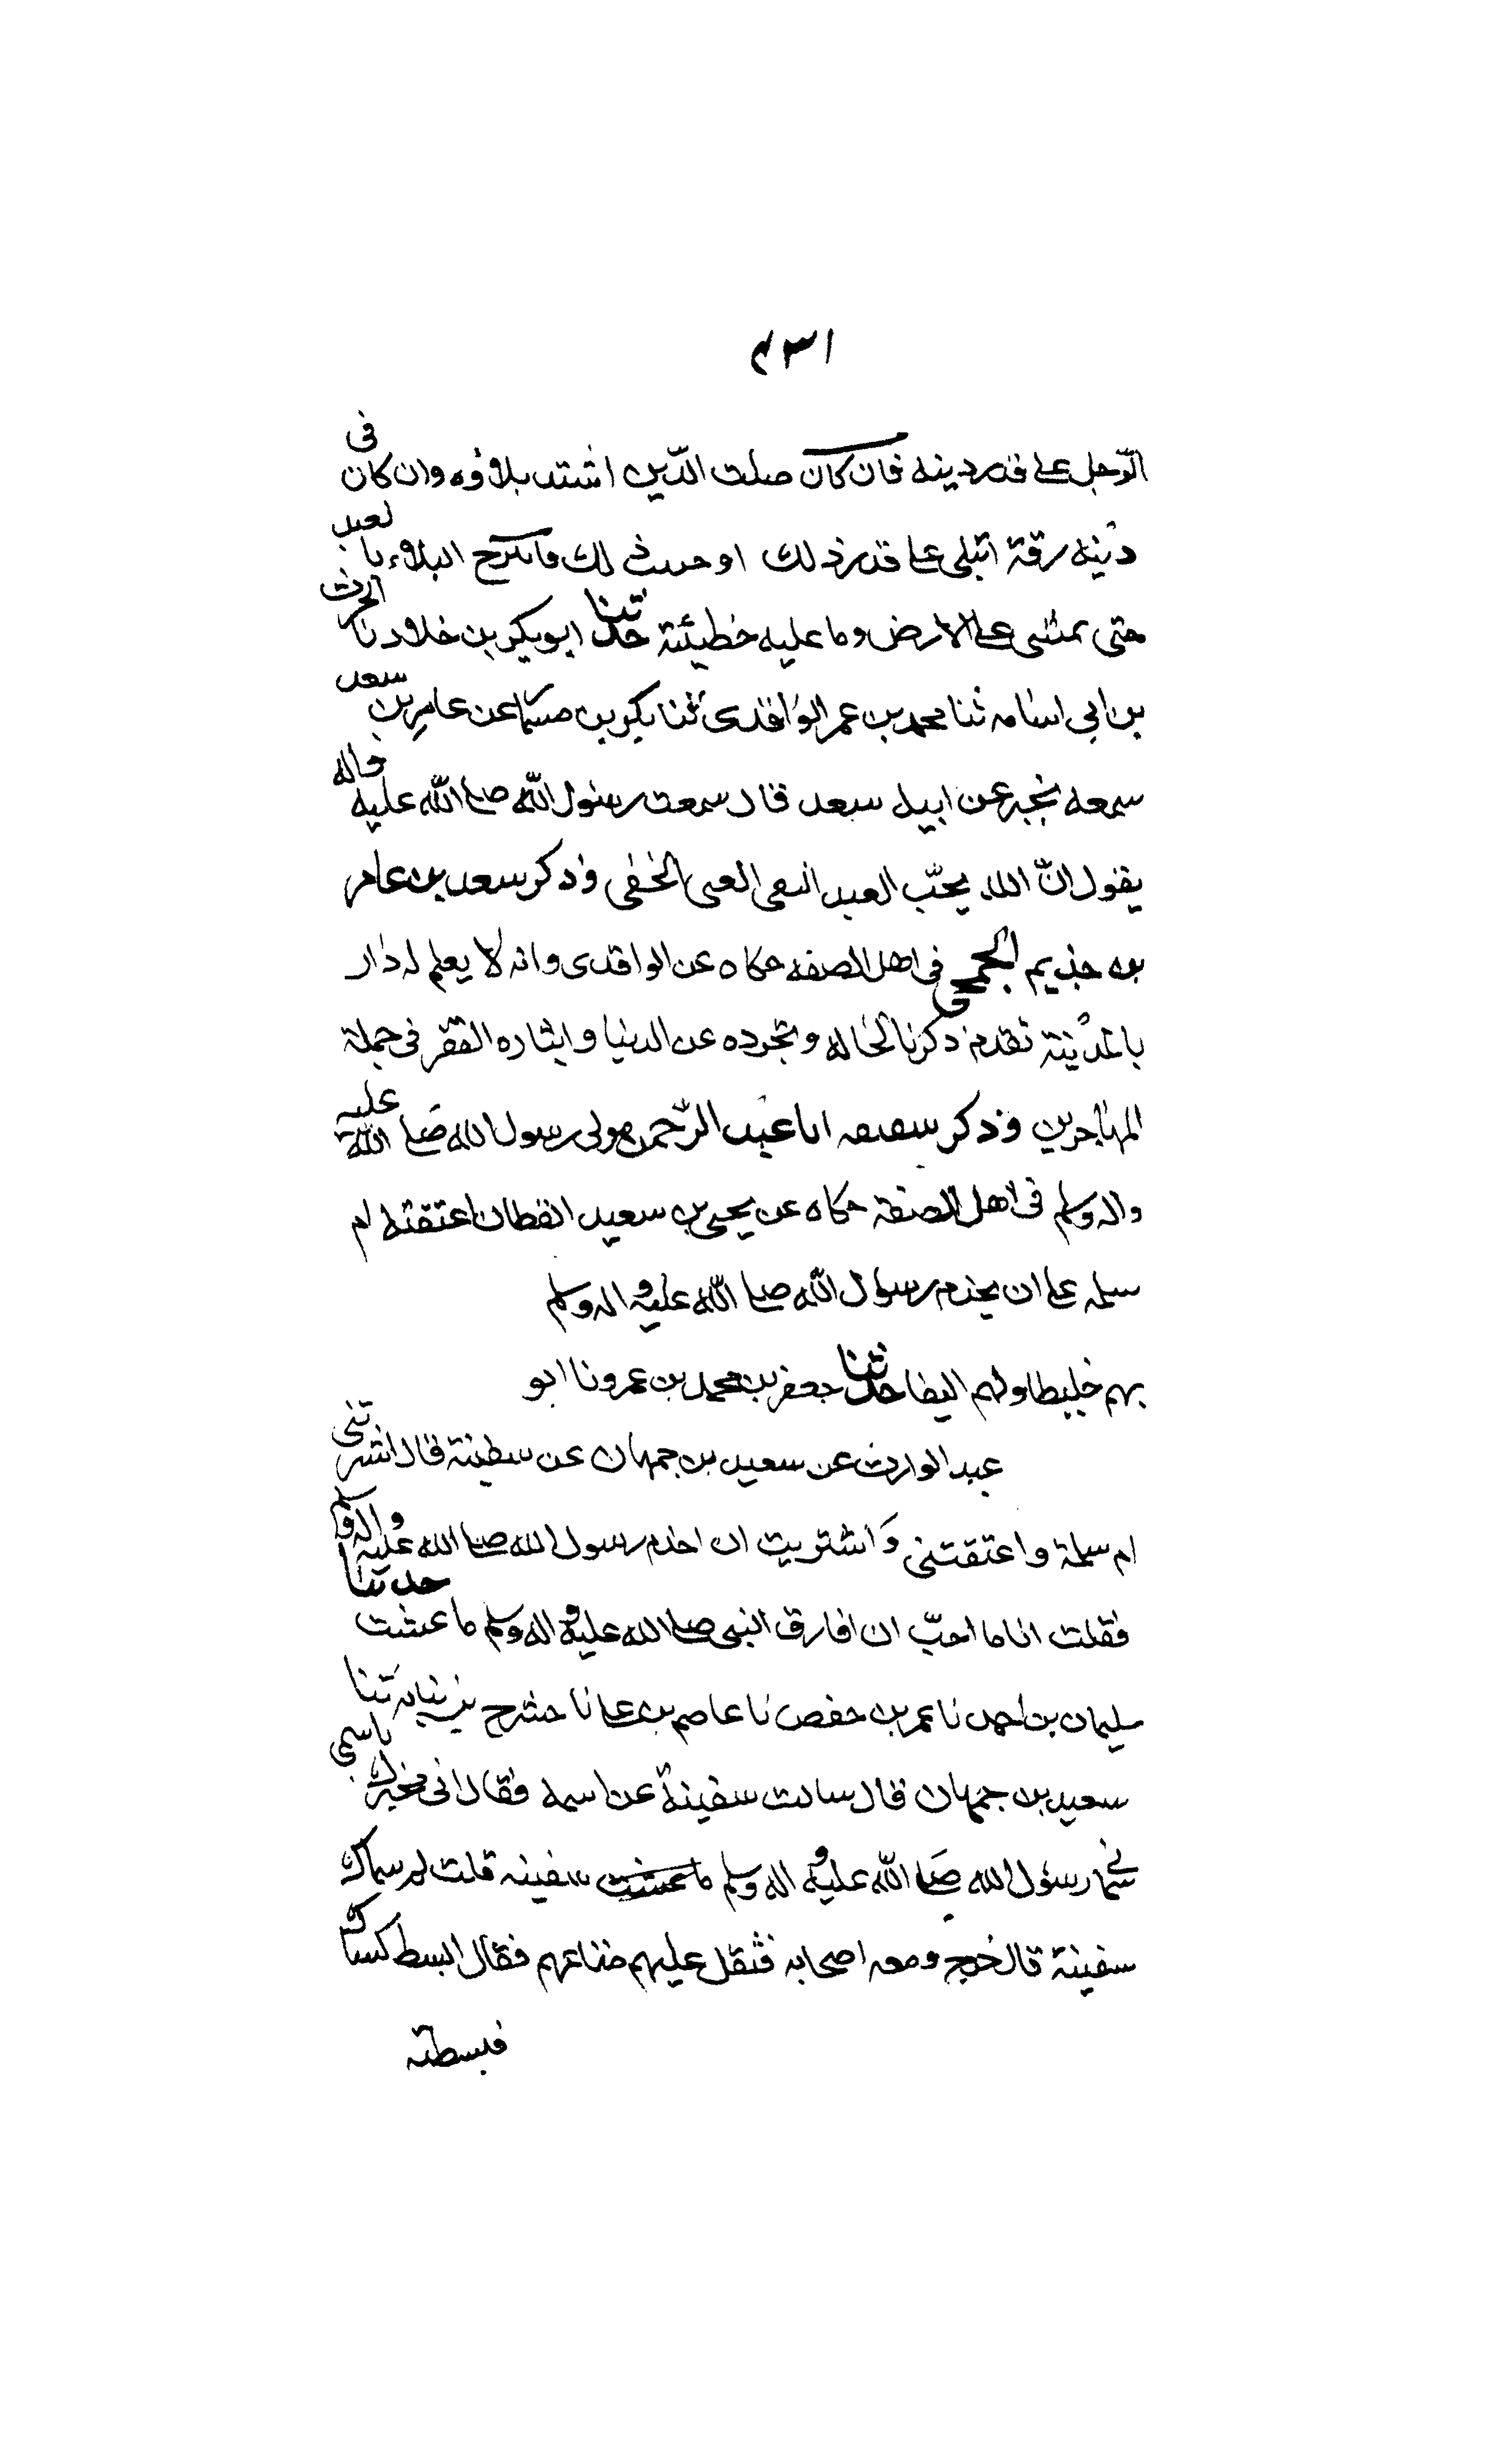 ٤٣١
الرجل على قدر دينه فان كان صلت الدّين اشتد بلاؤه وان كان فى
دينه رقة ابتلى على قدر ذلك او حسب ذلك فما يبرح البلاء بالعبد
حتى يمشى على الارض وما عليه خطيئة حدثنا ابو بكر بن خلاد نا الحرث
بن ابى اسامه ثنا محمد بن عمر الواقدى ثنا بكير بن مسمار عن عامر بن سعد
سمعه يخبر عن ابيه سعد قال سمعت رسول الله صلى الله عليه واله
يقول انّ الله يحبّ العبد التقى الغنى الخفى وذكر سعد بن عامر
بن جذيم الجمحى فى اهل الصفه حكاه عن الواقدى وانه لا يعلم له دار
بالمدينة تقدم ذكرنا لحاله وتجرده عن الدنيا وايثاره الفقر فى جملة
المهاجرين وذكر سفينه ابا عبد الرّحمن مولى رسول الله صلى الله عليه
واله وسلم فى اهل الصفة حكاه عن يحيى بن سعيد القطان اعتقته ام
سلمه على ان يخدم رسول الله صلى الله عليه واله وسلم
بهم خليطا ولهم اليفا حدثنا جعفر بن محمد بن عمرو نا ابو
عبد الوارث عن سعيد بن جمهان عن سطينة قال اشترتنى
ام سلمة واعتقتنى واشتريت ان اخدم رسول الله صلى الله عليه واله وسلم
فقلت انا ما احبّ ان افارق النبى صلى الله عليه واله وسلم ما عشت حدثنا
سليمان بن احمد نا عمر بن حفص نا عاصم بن على نا حشرج بن نباته ثنا
سعيد بن جمهان قال سالت سفينة عن اسمه فقال انى مخبرك باسمى
سمانى رسول الله صلى الله عليه واله وسلم ما عشت سفينه قلت لم سماك
سفينة قال خرج ومعه اصحابه فثقل عليهم متاعهم فقال ابسط كساك
فبسطته